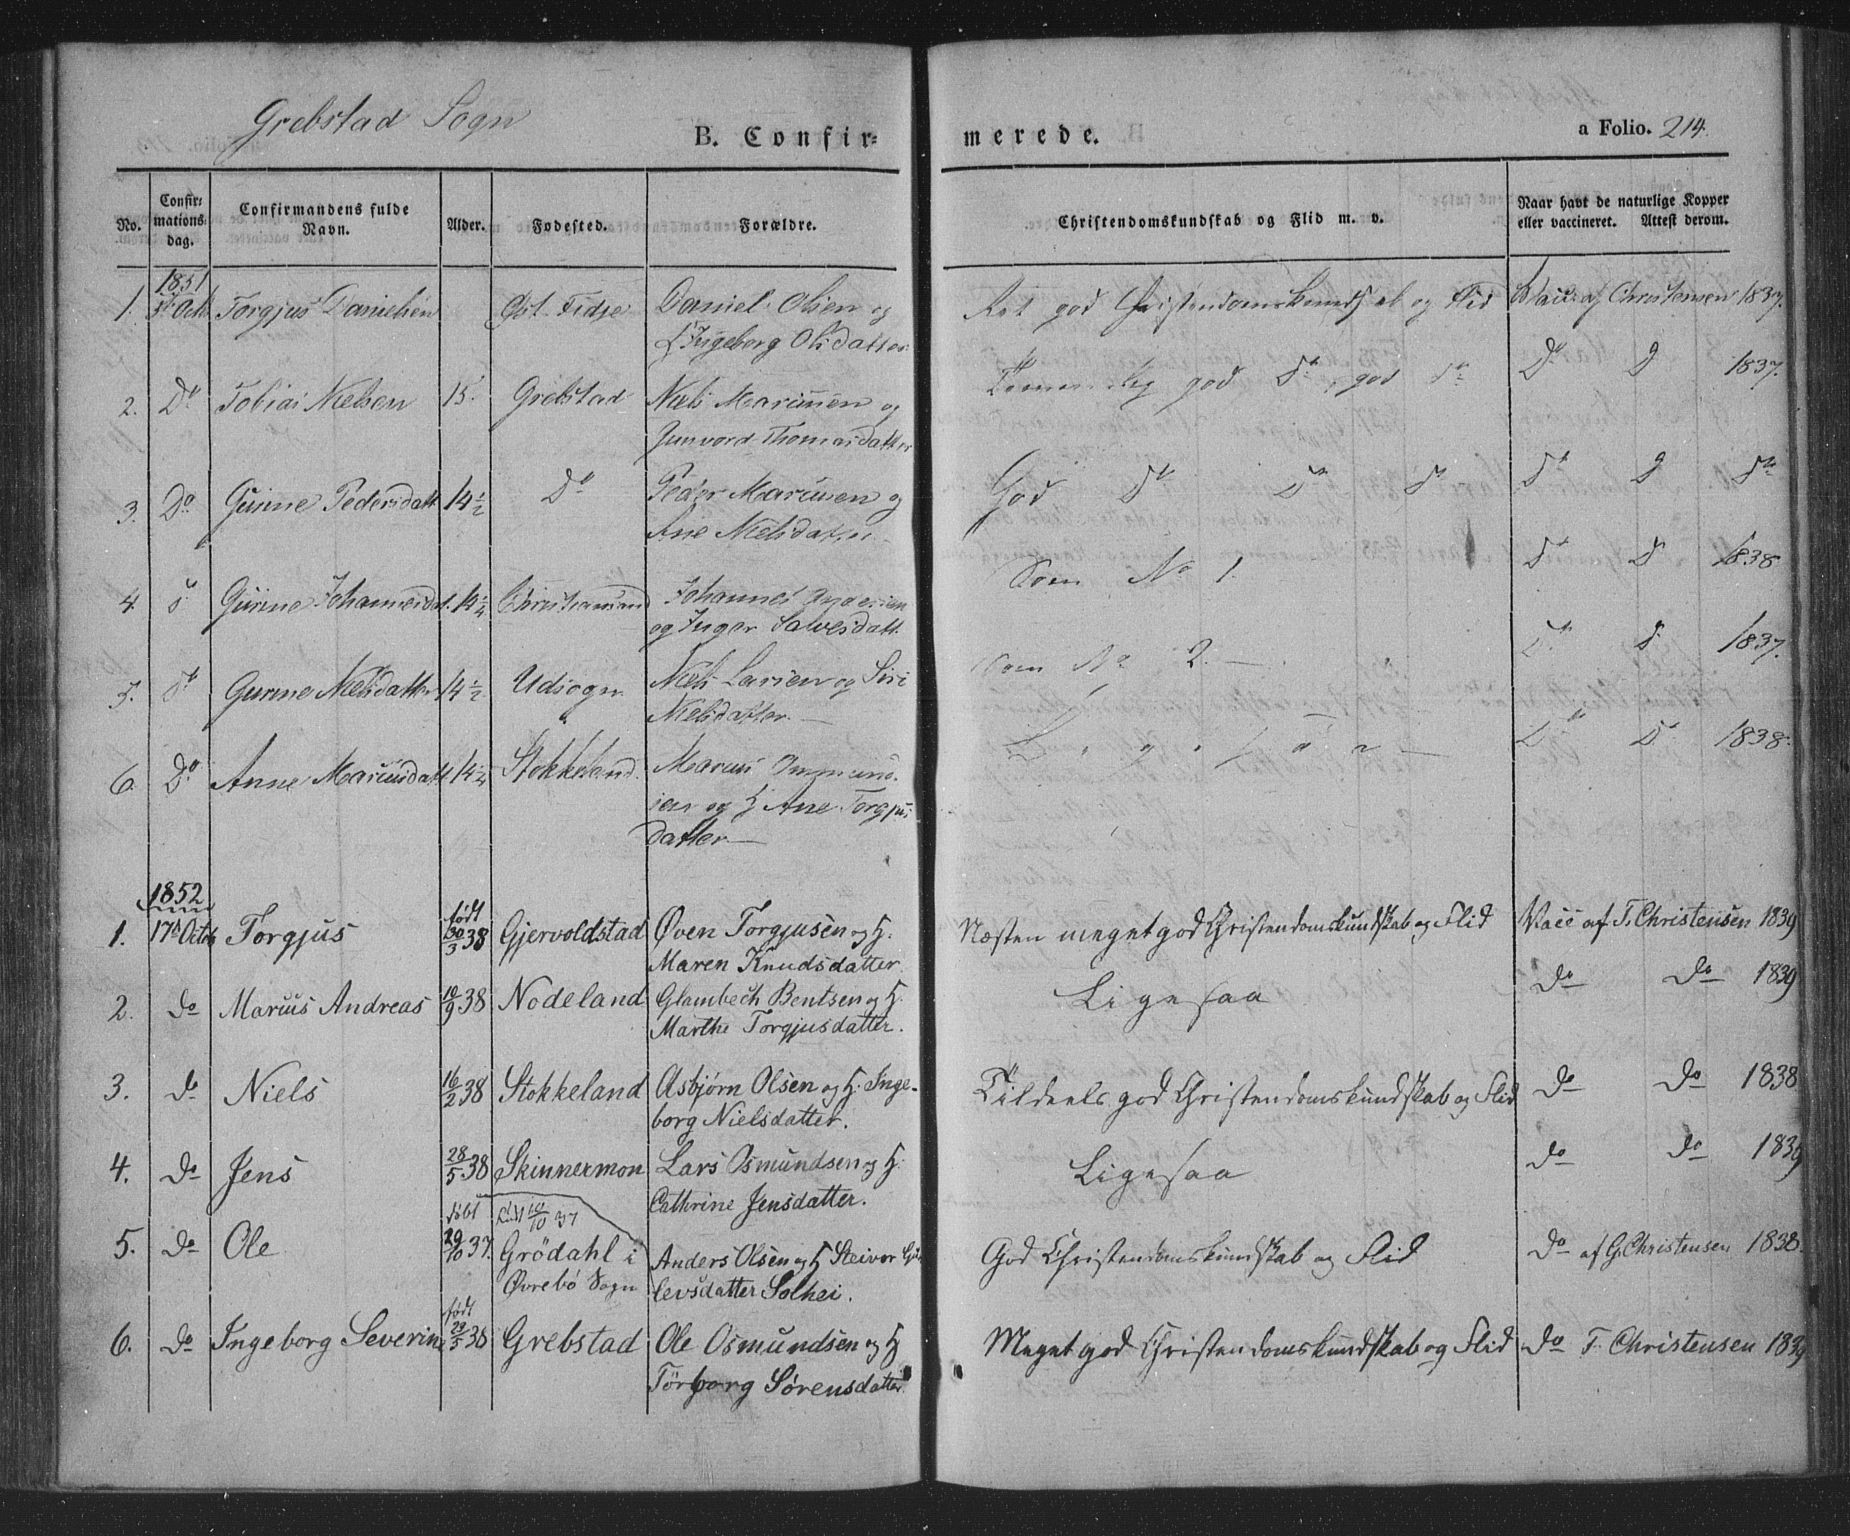 Grebstad Sogn
B. Confir-
merede.
a Folio. 214.
No. Confir-mations-dag. Confirmandens fulde Navn. Alder. Fødested. Forældre. Christendomskundskab og Flid m. v. Naar havt de naturlige Kopper eller vaccineret. Attest derom.
1851
1. 5te Octb Torgjus Danielsen Øst. Fidje Daniel Olsen og Ret god Christendomskundskab og Flid Vacc af Christensen 1837.
Ingeborg Olsdatter
2. Do Tobias Nielsen 15. Grebstad Niels Mariusen og god Do, god Do Do D 1837.
Gunvord Thomasdatter
3. Do Gurine Pedersdatt 14 1/2 Do Peder Mariusen og God Do Do Do Do D Do
Ane Nielsdatter
4. Do Gurine Johannesdat. 14 1/4 Christiansand Johannes Andersen Som No 1. Do D 1838
og Inger Salvesdatt.
5. Do Gurine Nielsdatter 14 1/2 Udsogn Niels Larsen og Siri Som No 2. — Do D. 1837.
Nielsdatter. —
6. Do Anne Mariusdatt 14 1/4 Stokkeland. Marius Ommund- L i g e s a a — Do D. 1838.
sen og H Ane Torgjus-
datter —
1852
1. 17de Octob Torgjus født 30/3 38 Gjervoldstad Øven Torgjusen og H. Næsten meget god Christendomskundskab og Flid Vacc af T. Christensen 1839
Maren Knudsdatter.
2. Do Marius Andreas 10/9 38 Nodeland Glambech Bentsen og H. Ligesaa Do Do 1839
Marthe Torgjusdatter.
3. Do Niels 16/2 38 Stokkeland Asbjørn Olsen og H. Inge- Tildeels god Christendomskundskab og Flid Do Do 1838
borg Nielsdatter.
4. Do Jens 28/5 38 Skinnermon Lars Osmundsen og H. Ligesaa Do Do 1839
Cathrine Jensdatter.
5. Do Ole født 29/10 37. Grödahl i Anders Olsen og H Steivor God Christendomskundskab og Flid Do af G. Christensen 1838.
Øvrebö Sogn levsdatter Solhei.
6. Do Ingeborg Severine født 29/5 38 Grebstad Ole Osmundsen og H Meget god Christendomskundskab og Flid Do T. Christensen 1839
Törborg Sørensdatter